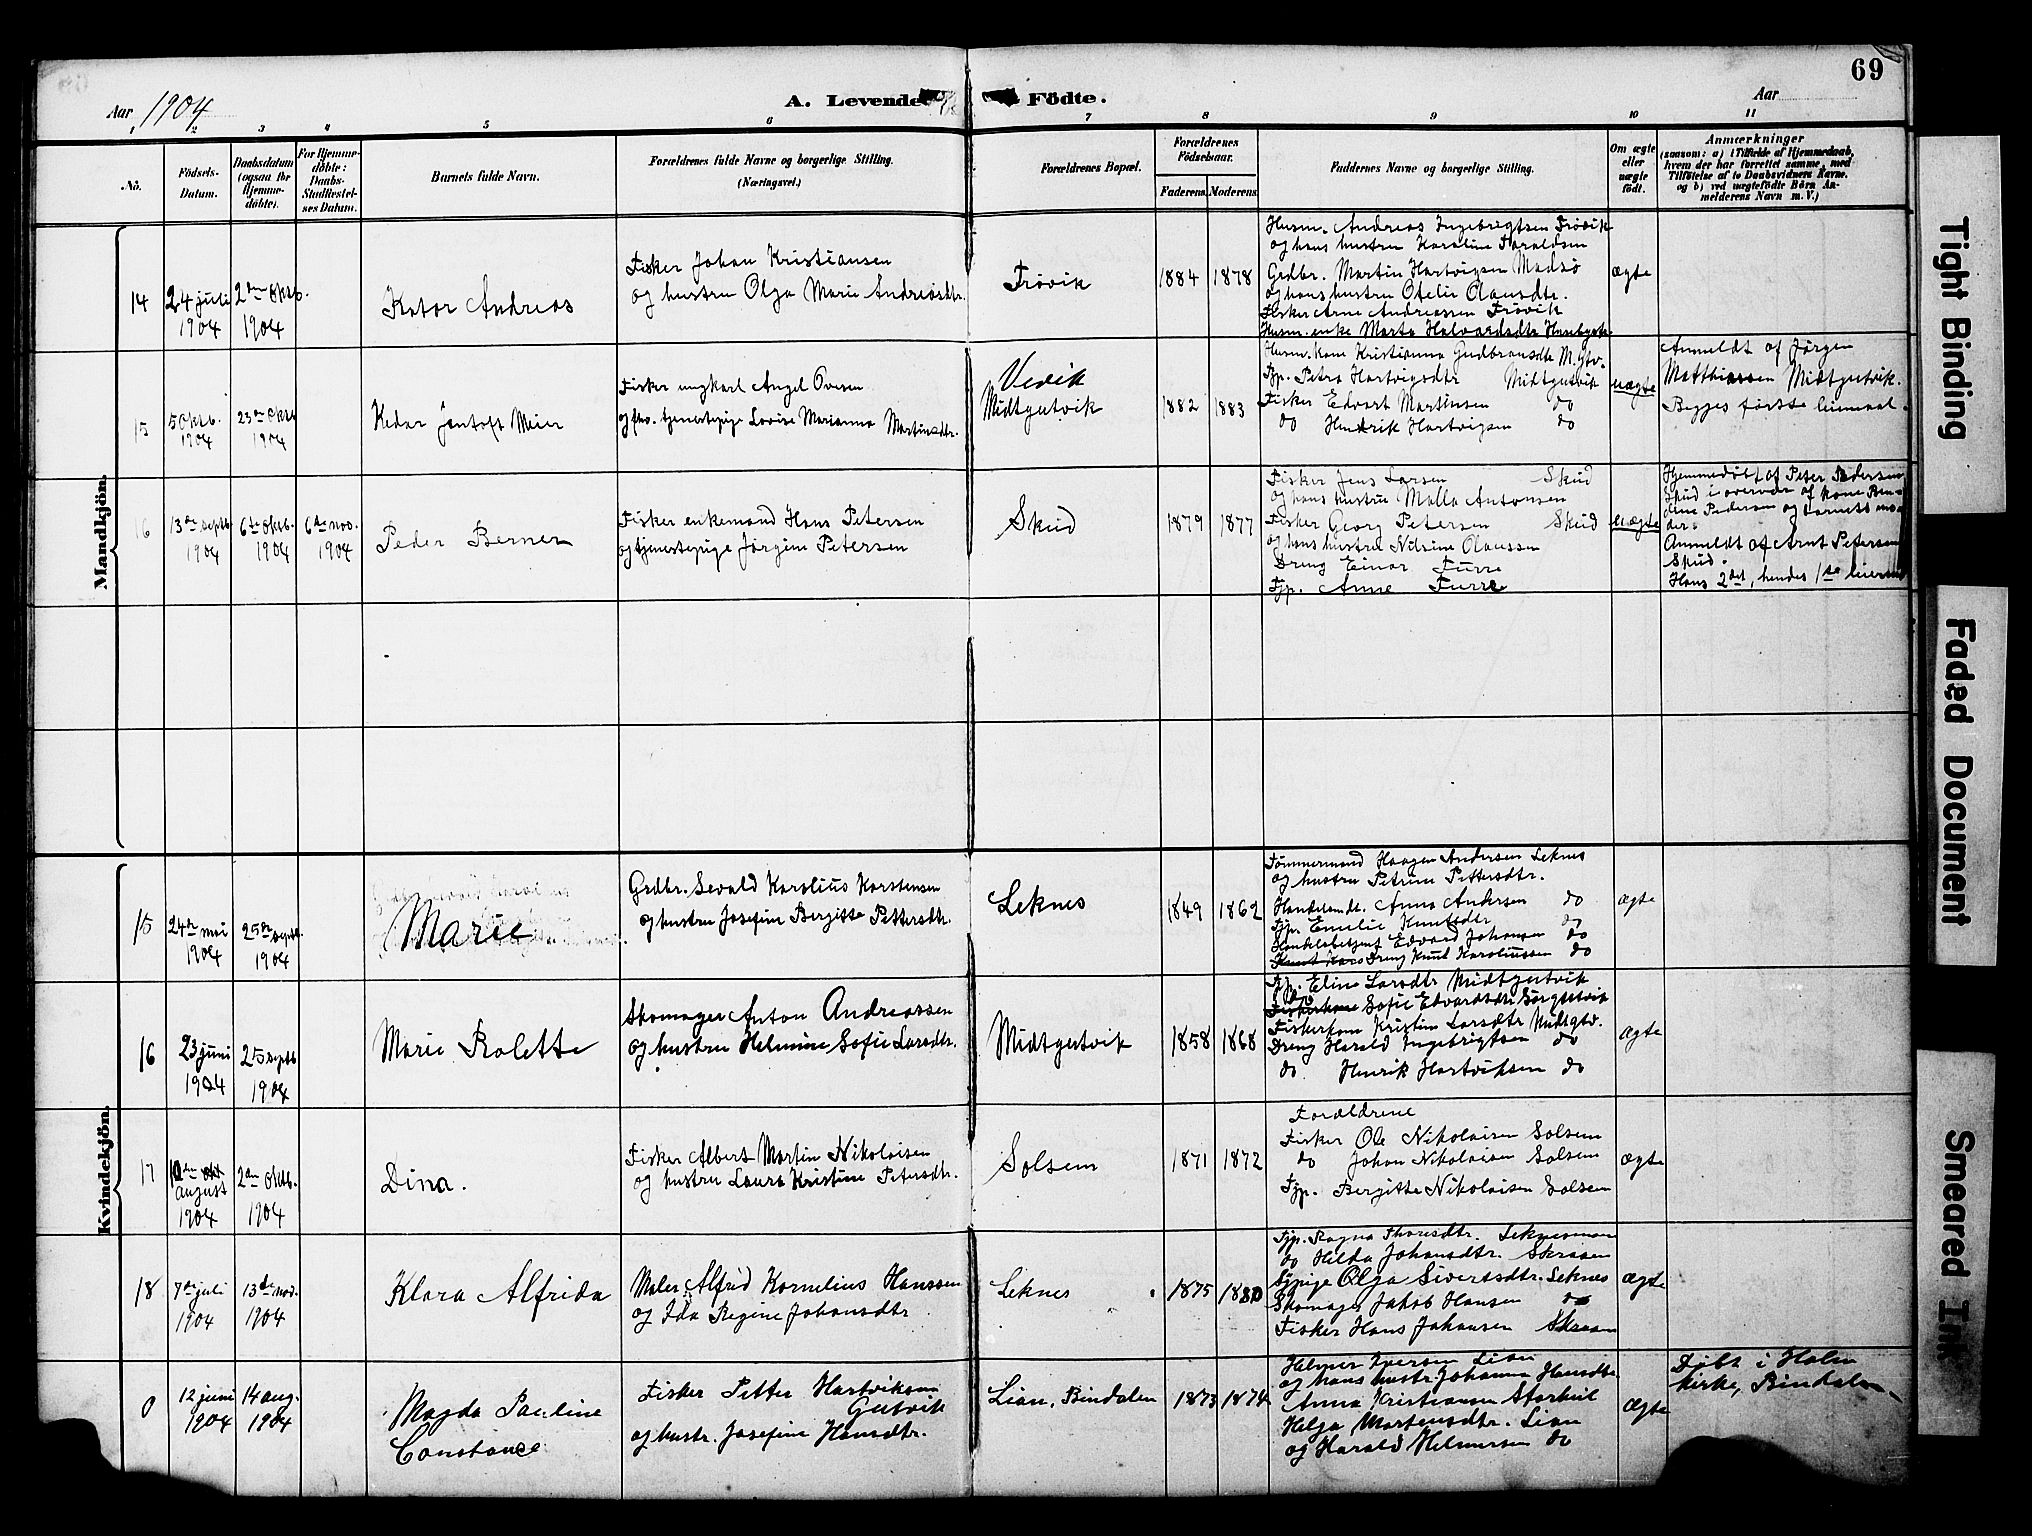 69
Aar 1904
A. Levende Fødte.
Aar
1 2 3 4 5 6 7 8 9 10 11
No.
Fødsels-
Datum.
Daabsdatum
(ogsaa for
Hjemme-
døbte).
For Hjemme-
døbte:
Daabs-
Stadfæstel-
ses Datum.
Barnets fulde Navn.
Forældrenes fulde Navne og borgerlige Stilling.
(Næringsvei.)
Forældrenes Bopæl.
Forældrenes
Fødselsaar.
Faderens. Moderens.
Faddernes Navne og borgerlige Stilling.
Om ægte
eller
uægte
født.
Anmærkninger
(saasom: a) i Tilfælde af Hjemmedaab,
hvem der har forrettet samme, med
Tilføielse af to Daabsvidners Navne.
og b) ved uægtefødte Børn An-
melderens Navn m. V.)
Mandkjön.
14
24 juli
1904
2den oktb.
1904
Andreas
Fisker Johan Kristiansen
og hustru Olga Marie Andreasdtr.
Frøvik
1884 1878
Husm. Andreas Ingebrigtsen Frøvik
og hans hustru Karoline Haraldsen
Grdbr. Martin Hartvigsen Madsø
og hans hustru Ofelie Olausdtr.
Fisker Arne Andreassen Frøvik
Husm. enke Marta Halvardsdtr
ægte
15
5 oktb.
1904
23de oktb
1904
Kedar Jentoft Meier
Fisker ungkarl Angel Ovesen
og tjenestepige Lovise Marianna Martinsdtr.
Vevik
Midtgutvik
1882 1883
Husm. kone Kristianna Gudbransdtr M.gtv.
Tjp. Petra Hartvigsdtr Midtgutvik
Fisker Edvart Martinsen do
do Hendrik Hartvigsen do
uægte
Anmeldt af Jørgen
Matthiassen Midtgutvik.
Begges første leiermaal.
16
13de septb
1904
6te oktb.
1904
6te nov.
1904
Peder Berner
Fisker enkemand Hans Petersen
og tjenestepige Jørgine Petersen
Skud
1879 1877
Fisker Jens Larsen Skud
og hans hustru Malla Antonsen
Fisker Georg Petersen Skud
og hans hustru Nilsine Olaussen
Dreng Einar Furre
Tjp. Anne Furre
uægte
Hjemmedøbt af Peter Pedersen
Skud i overvær af kone
Pedersen og barnets mo-
der.
Anmeldt af Arnt Petersen
Skud.
Hans 2det, hendes 1ste leiermaal
Kvindekjön.
15
24de mai
1904
25de septb.
1904
Marie
Grdbr. Sevald Karolius Karstensen
og hustru Josefine Bergitte Pettersdtr.
Leknes
1849 1862
Tømmermand Haagen Andersen Leknes
og hustru Petrine Pettersdtr.
Handelsmdt. Anna Andersen do
Tjp. Emelie Knutsdtr do
Handelsbetjent Edvard Johansen do
Dreng Knut Karoliussen do
ægte
16
23 juni
1904
25 septb
1904
Marie Rolette
Skomager Anton Andreassen
og hustru Helmine Sofie Larsdtr.
Midtgutvik
1858 1868
Tjp. Eline Larsdtr Midtgutvik
do Sofie Edvardsdtr
Fiskerkone Kristine Larsdtr Midtgtv.
Dreng Harald Ingebrigtsen do
do Henrik Hartviksen do
ægte
17
10de
august
1904
2den oktb.
1904
Dina.
Fisker Albert Martin Nikolaisen
og hustru Laura Kristine Petersdtr.
Solsem
1871 1872
Forældrene
Fisker Ole Nikolaisen Solsem
do Johan Nikolaisen Solsem
Tjp. Bergitte Nikolaisen Solsem
ægte
18
7de juli
1904
13de nov.
1904
Klara Alfrida
Maler Alfrid Kornelius Hanssen
og Ida Regine Johansdtr
Leknes
1875 1880
Tjp. Ragna Thoresdtr. Leknesmoen
do Hilda Johansdtr. Skraaen
Sypige Olga Sivertsdtr. Leknes
Skomager Jakob Hansen do
Fisker Hans Johansen Skraaen
ægte
0
12 juni
1904
14 aug.
1904
Magda Pauline
Constance
Fisker Petter Hartviksen
Gutvik
og hustr. Josefine Hansdtr.
Lian, Bindalen
1873 1874
Helmer Iversen Lian
og hans hustr. Johanna Hansdtr
Anna Kristiansen
Helga Mortensdtr. Lian
og Harald Helmersen do
ægte
Døbt i Holm
kirke, Bindalen
Tight Binding
Faded Document
Smeared Ink